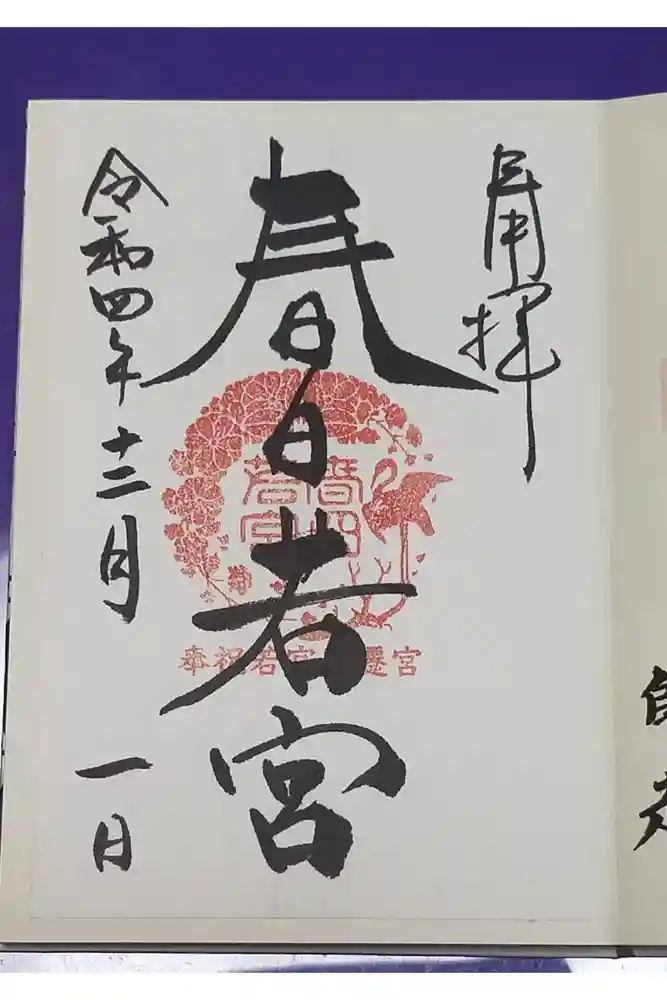 奉拝
春日若宮
令和四年十二月一日
春日
若宮
奉祝若宮 遷宮